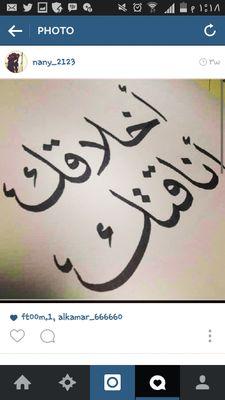 م ١:١٨
PHOTO
nany_2123
٣w
أخلاقك
أناقتك
ft00m,1, alkamar_666660